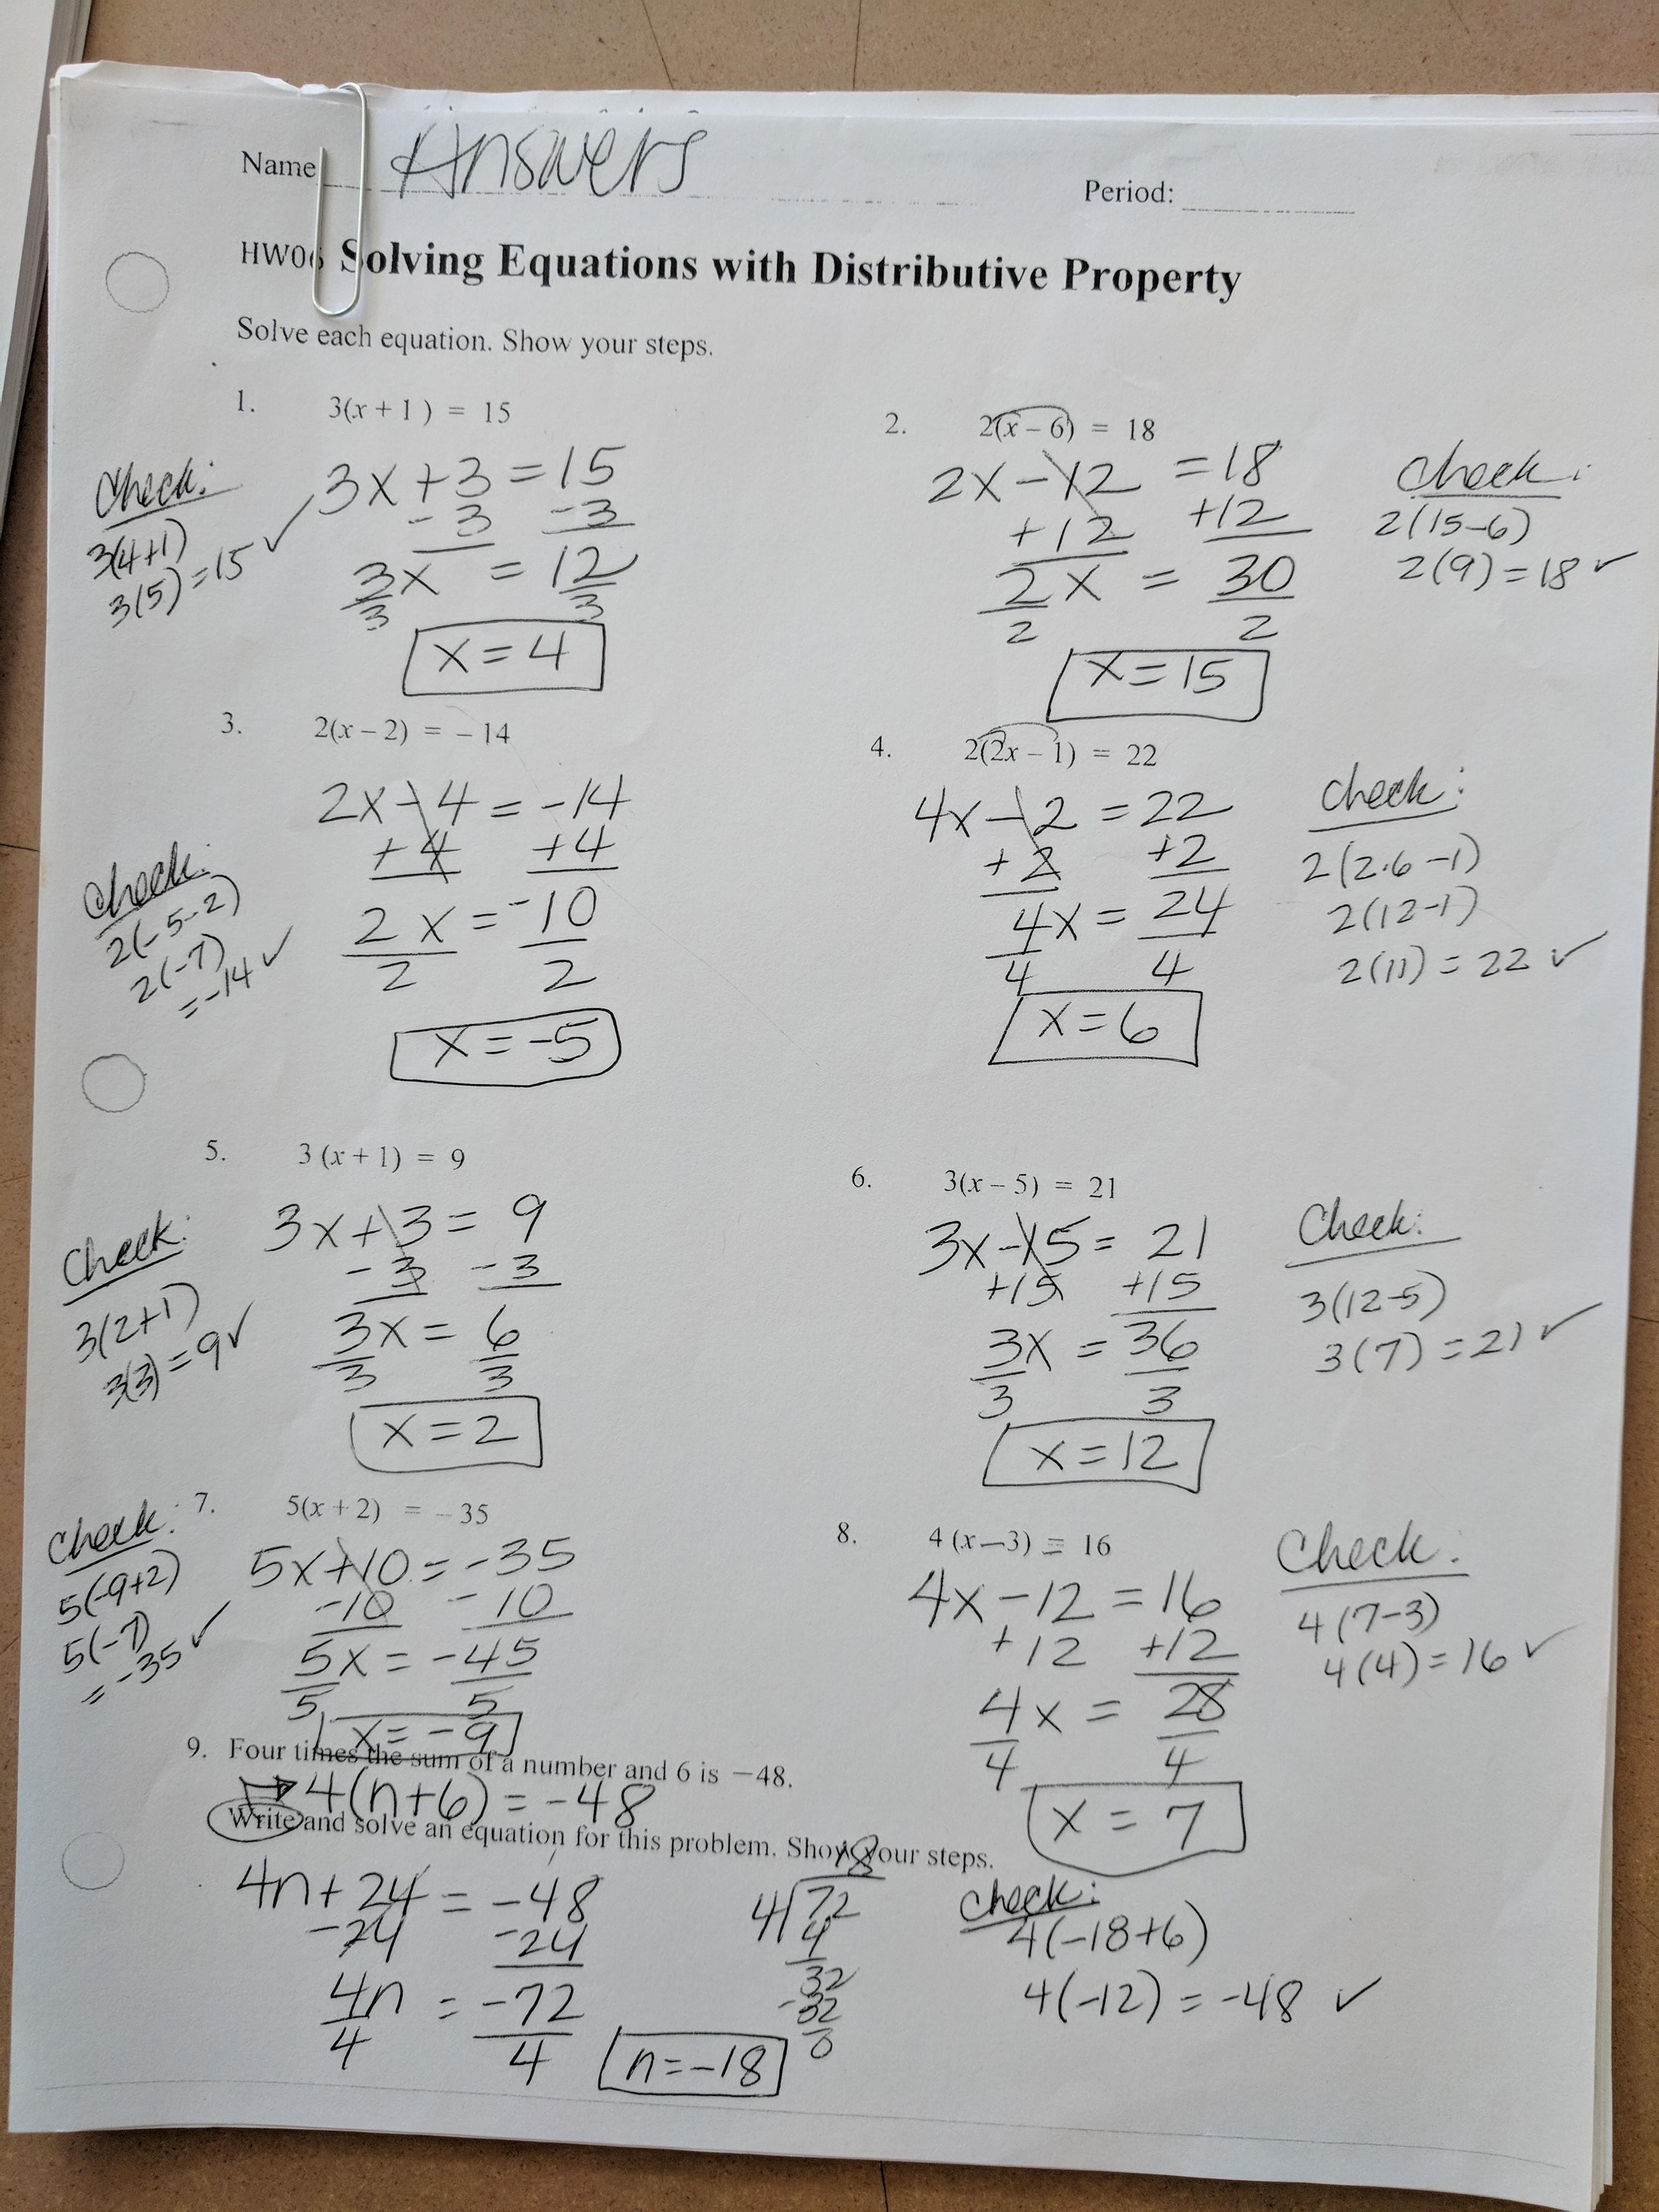 Name Answers Period:
HW06 Solving Equations with Distributive Property
Solve each equation. Show your steps.
1. 3(x + 1) = 15
3x + 3 = 15
- 3 - 3
3x = 12
3 3
x = 4
Check:
3(4+1)
3(5) = 15 ✓
2. 2(x – 6) = 18
2x - 12 = 18
+12 +12
2x = 30
2 2
x = 15
Check:
2(15-6)
2(9) = 18 ✓
3. 2(x – 2) = – 14
2x - 4 = -14
+ 4 +4
2x = -10
2 2
x = -5
Check:
2(-5-2)
2(-7)
= -14 ✓
4. 2(2x – 1) = 22
4x - 2 = 22
+ 2 +2
4x = 24
4 4
x = 6
Check:
2(2·6-1)
2(12-1)
2(11) = 22 ✓
5. 3 (x + 1) = 9
3x + 3 = 9
- 3 - 3
3x = 6
3 3
x = 2
Check:
3(2+1)
3(3) = 9 ✓
6. 3(x – 5) = 21
3x - 15 = 21
+15 +15
3x = 36
3 3
x = 12
Check:
3(12-5)
3(7) = 21 ✓
7. 5(x + 2) = – 35
5x + 10 = -35
-10 - 10
5x = -45
5 5
x = -9
Check:
5(-9+2)
5(-7)
= -35 ✓
8. 4 (x – 3) = 16
4x - 12 = 16
+ 12 +12
4x = 28
4 4
x = 7
Check:
4(7-3)
4(4) = 16 ✓
9. Four times the sum of a number and 6 is – 48.
→ 4(n+6) = -48
Write and solve an equation for this problem. Show your steps.
4n + 24 = -48
-24 -24
4n = -72
4 4
n = -18
18
4)72
4
32
-32
0
Check:
4(-18+6)
4(-12) = -48 ✓